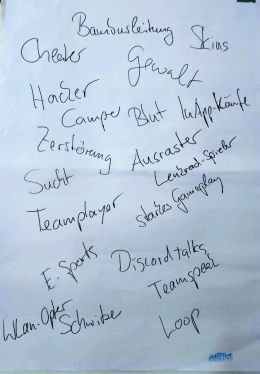 Skins
Cheater
Gewalt
Hacker
Camper Blut InApp-Käufe
Zerstörung Ausraster
Lenkrad-Spieler
Sucht
starkes Gameplay
Teamplayer
E-Sports
Discordtalks
Teamspeak
Schwitzer
Loop